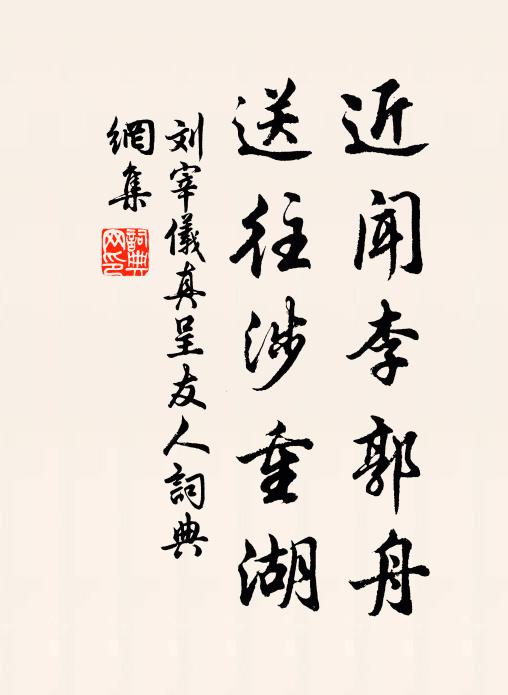 近闻李郭舟
送往涉重湖
刘宰儀真呈友人詞典
網集
詞典
网印